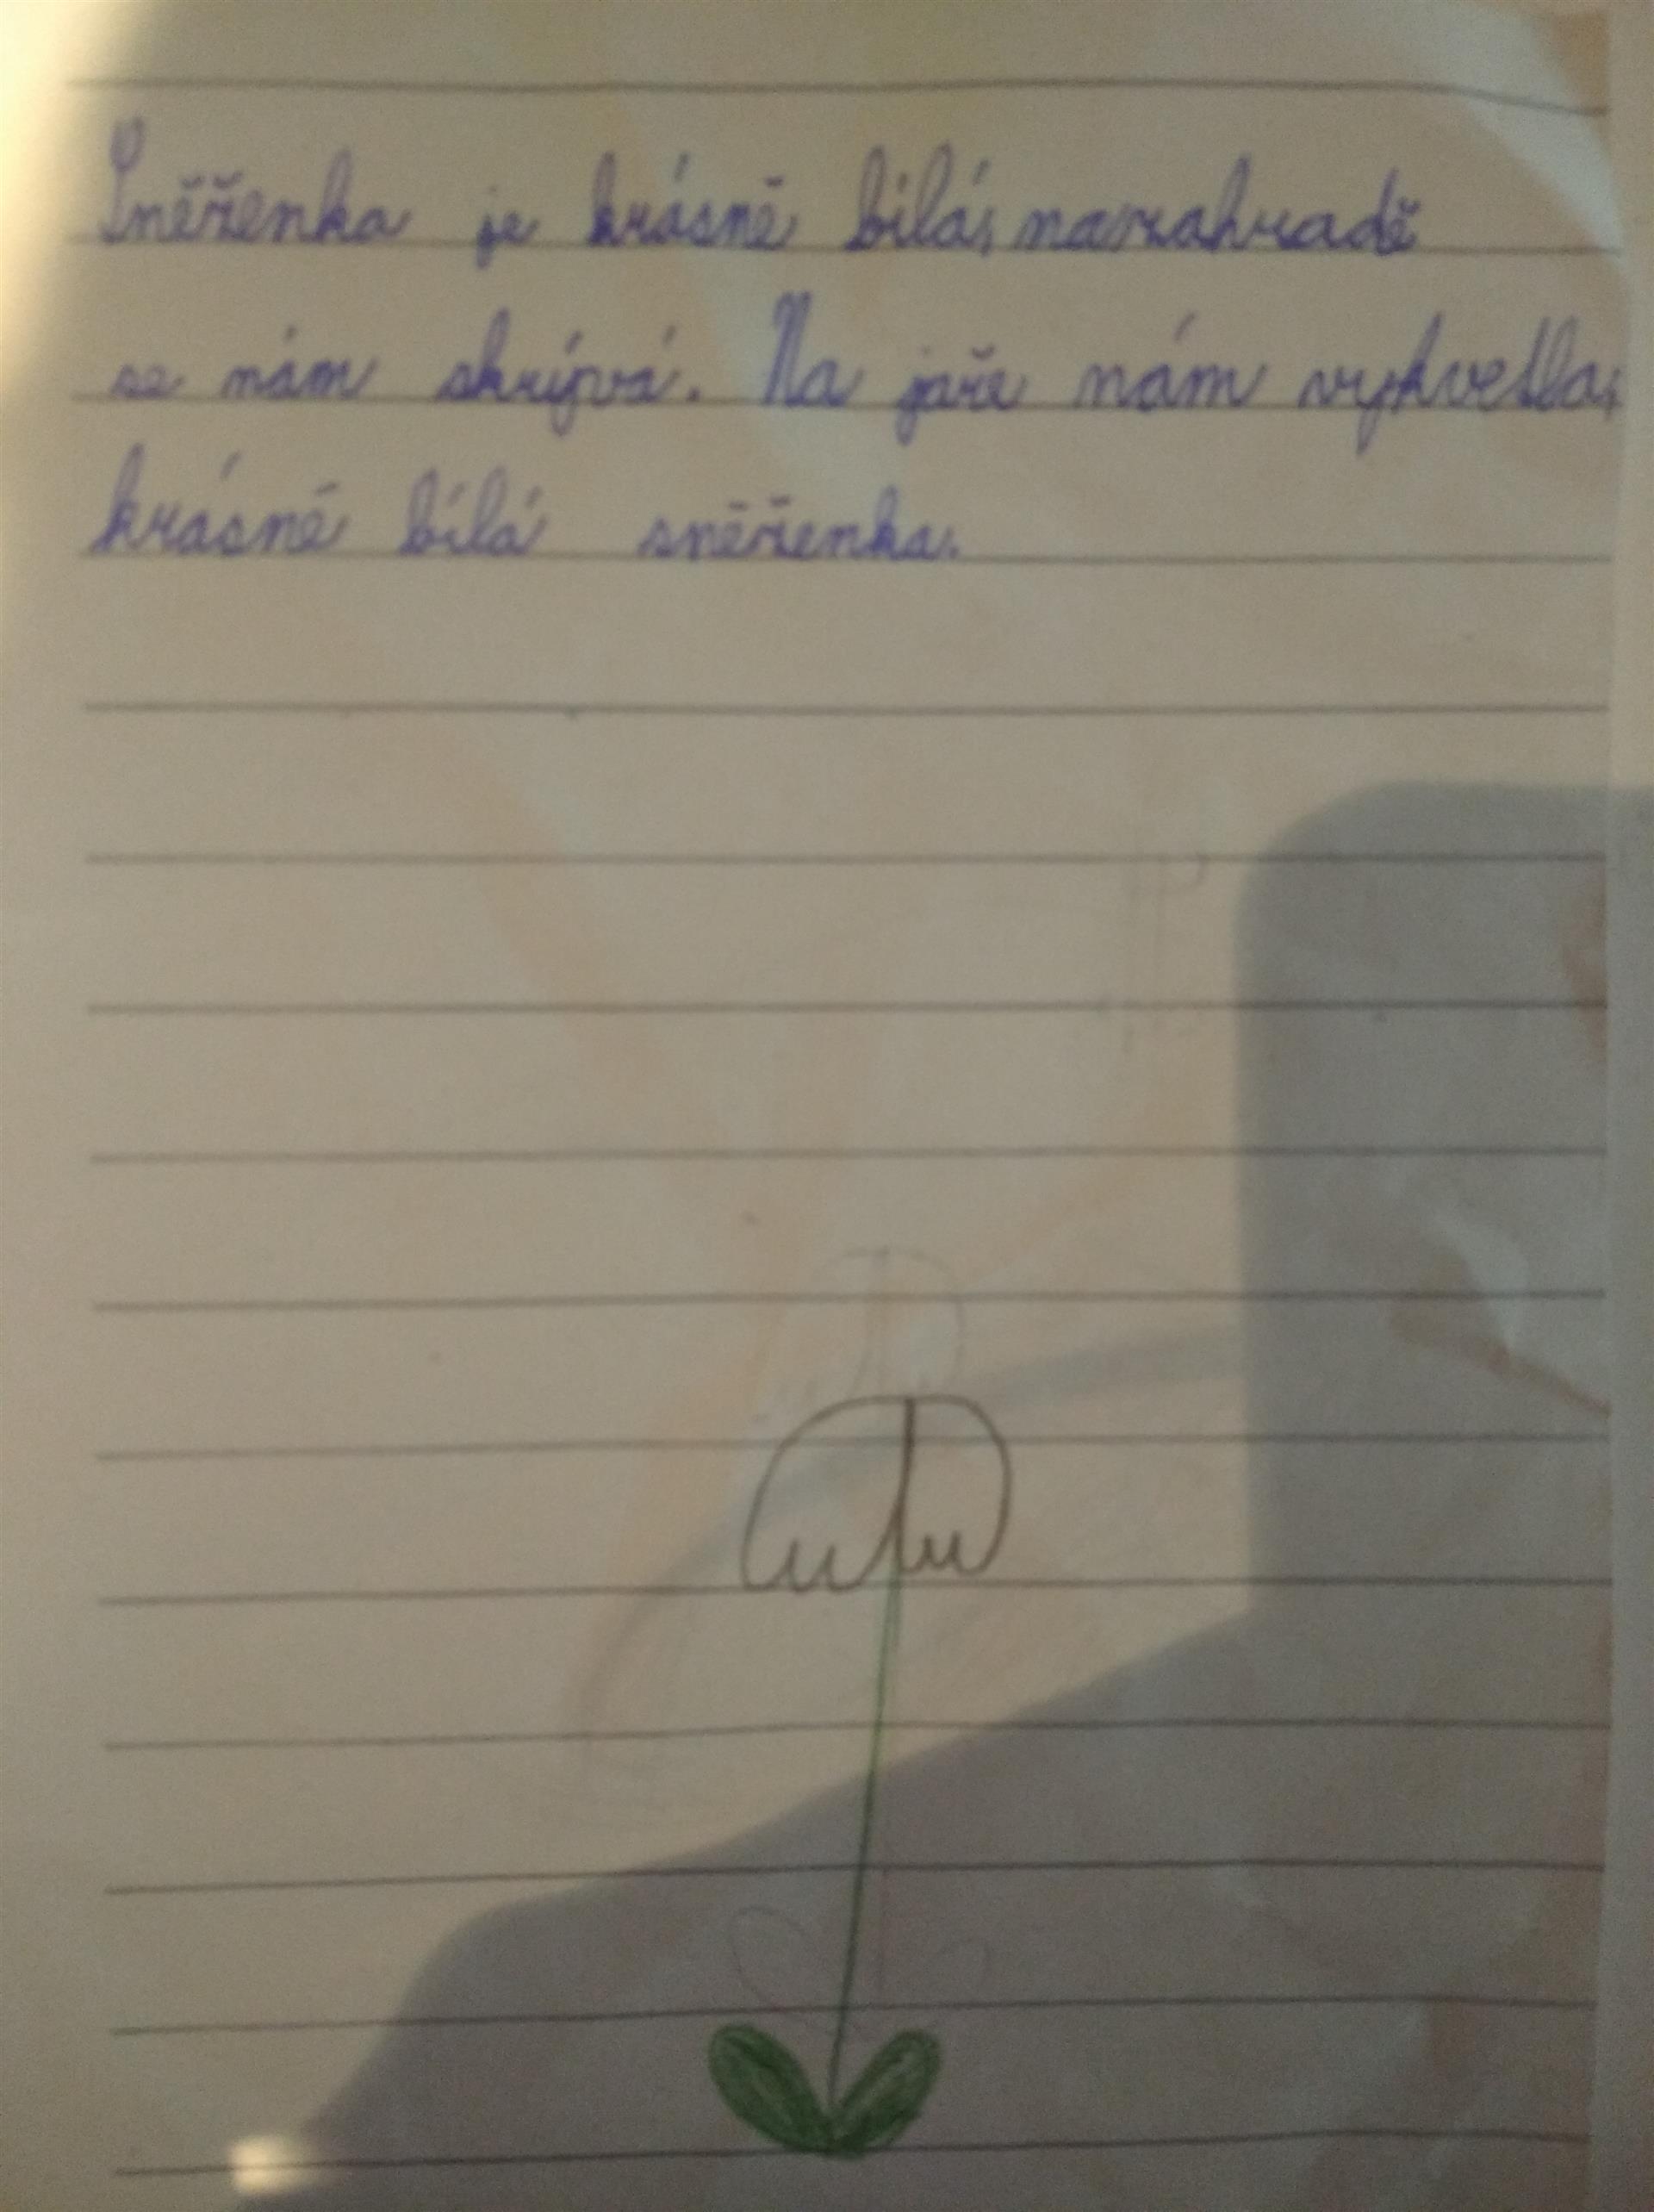 Sněženka je krásně bilá, nazahradě
se nám skrývá. Na jaře nám vykvetla,
krásně bílá sněženka.